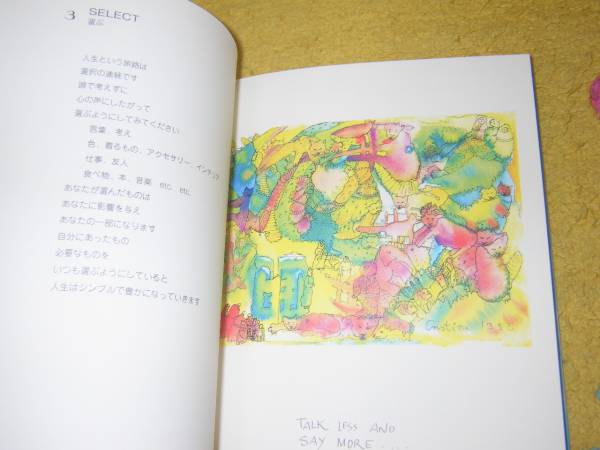 3 SELECT
選ぶ
人生という旅路は
選択の連続です
頭で考えずに
心の声にしたがって
選ぶようにしてみてください
言葉、考え
色、着るもの、アクセサリー、インテリア
仕事、友人
食べ物、本、音楽 etc. etc.
あなたが選んだものは
あなたに影響を与え
あなたの一部になります
自分にあったもの
必要なものを
いつも選ぶようにしていると
人生はシンプルで豊かになっていきます
TALK LESS AND
SAY MORE....